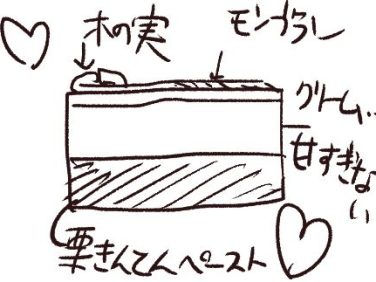 木の実
モンブラン
クリーム..
甘すぎな
い
栗きんとんペースト